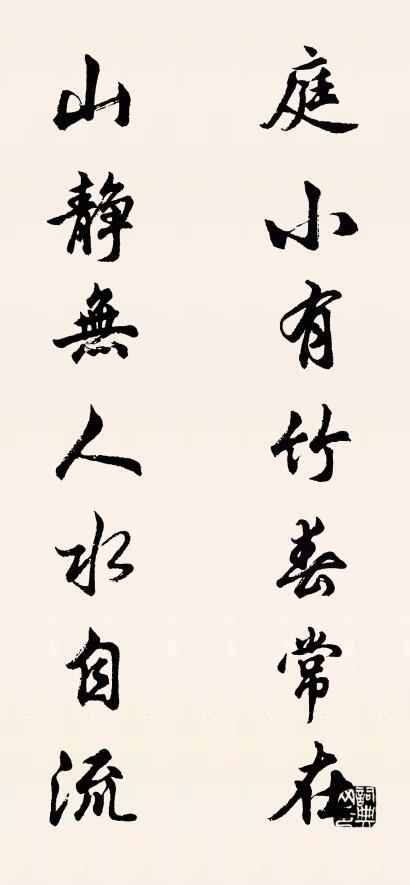 庭小有竹春常在
山靜無人水自流
詞典網